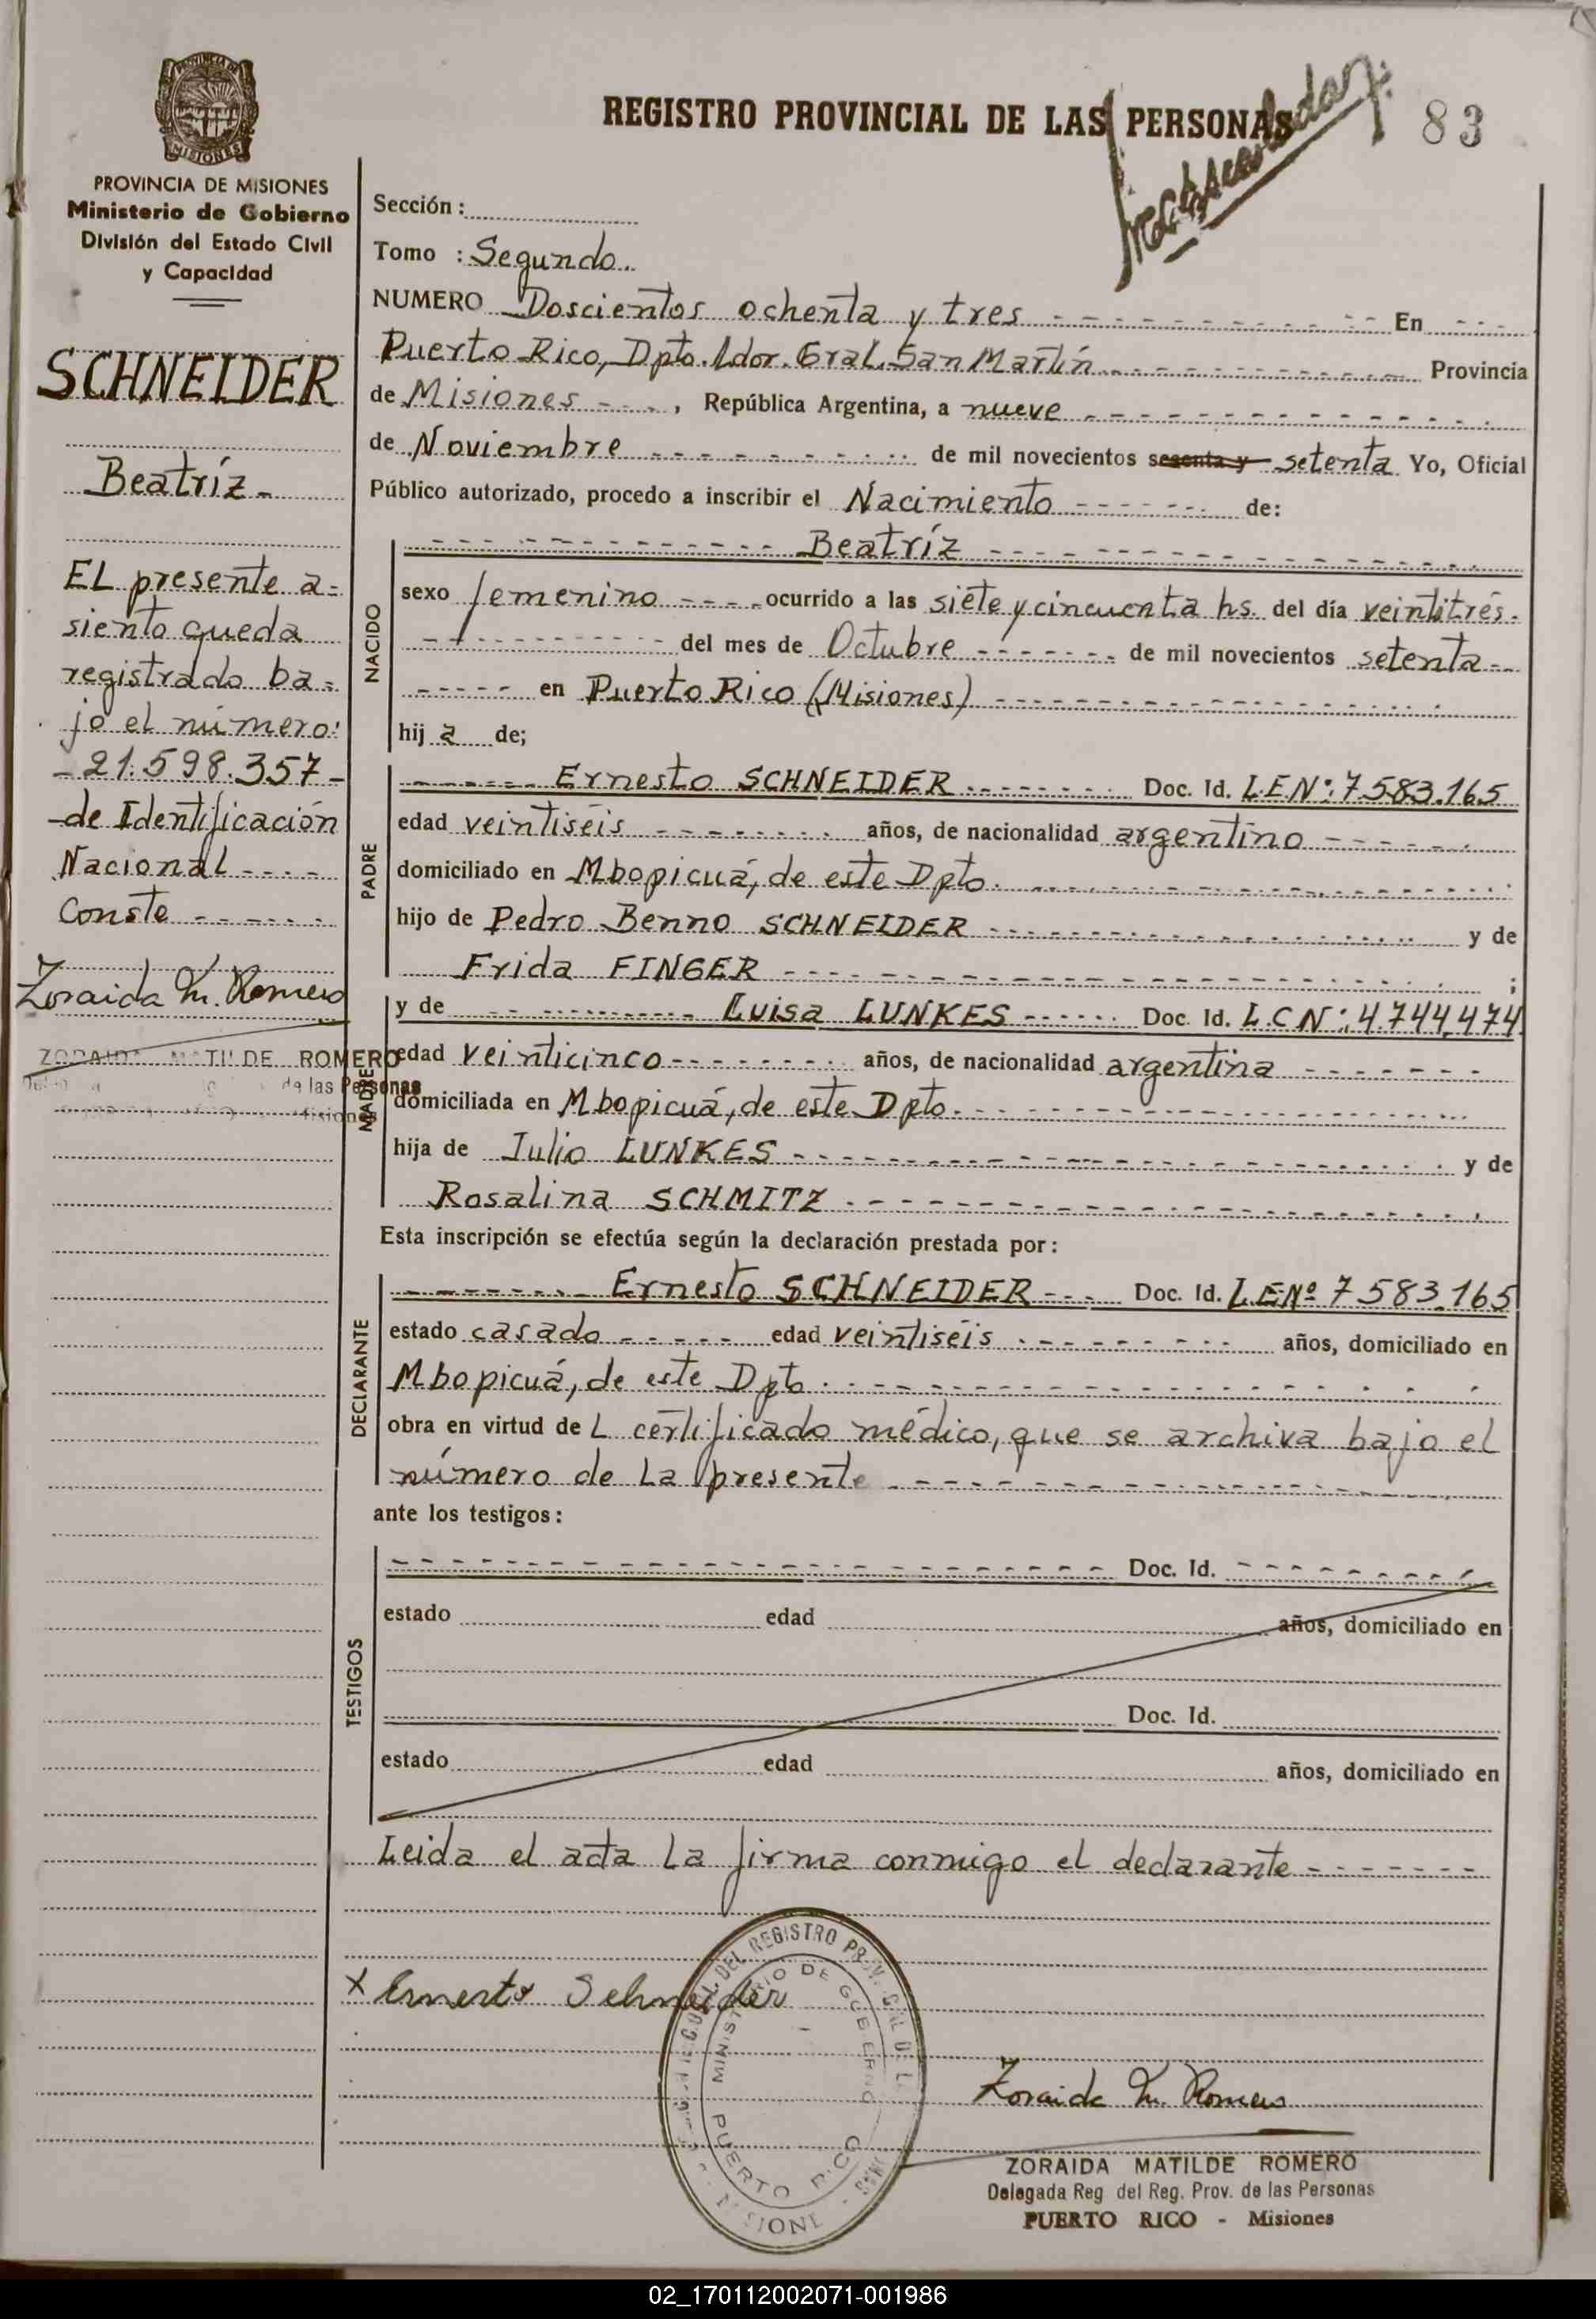 REGISTRO PROVINCIAL DE LAS PERSONAS
83
PROVINCIA DE MISIONES
Ministerio de Gobierno
División del Estado Civil
y Capacidad
SCHNEIDER
Beatríz
EL presente a=
siento queda
registrado ba=
jo el número:
21.598.357
de Identificación
Nacional
Conste
Zoraida M. Romero
ZORAIDA MATILDE ROMERO
de las Personas
Misiones
Sección:
Tomo : Segundo.
NUMERO Doscientos ochenta y tres En
Puerto Rico, Dpto. Ldor. Gral. San Martín Provincia
de Misiones , República Argentina, a nueve
de Noviembre de mil novecientos sesenta y setenta Yo, Oficial
Público autorizado, procedo a inscribir el Nacimiento de:
NACIDO
Beatríz
sexo femenino ocurrido a las siete y cincuenta hs. del día veintitrés
del mes de Octubre de mil novecientos setenta
en Puerto Rico (Misiones)
hij a de;
PADRE
Ernesto SCHNEIDER Doc. Id. L.E.Nº: 7.583.165
edad veintiséis años, de nacionalidad argentino
domiciliado en Mbopicuá, de este Dpto.
hijo de Pedro Benno SCHNEIDER y de
Frida FINGER ;
MADRE
y de Luisa LUNKES Doc. Id. L.C Nº: 4.744.474
edad veinticinco años, de nacionalidad argentina
domiciliada en Mbopicuá, de este Dpto.
hija de Julio LUNKES y de
Rosalina SCHMITZ
Esta inscripción se efectúa según la declaración prestada por:
DECLARANTE
Ernesto SCHNEIDER Doc. Id. L.E.Nº 7.583.165
estado casado edad veintiséis años, domiciliado en
Mbopicuá, de este Dpto.
obra en virtud de L certificado médico, que se archiva bajo el
número de La presente
ante los testigos:
TESTIGOS
Doc. Id.
estado edad años, domiciliado en
Doc. Id.
estado edad años, domiciliado en
Leida el acta La firma conmigo el declarante
x Ernesto Schneider
DEL REGISTRO PROV.
MINISTERIO DE GOBIERNO
PUERTO RICO
Zoraida M. Romero
ZORAIDA MATILDE ROMERO
Delegada Reg del Reg. Prov. de las Personas
PUERTO RICO - Misiones
02_170112002071-001986